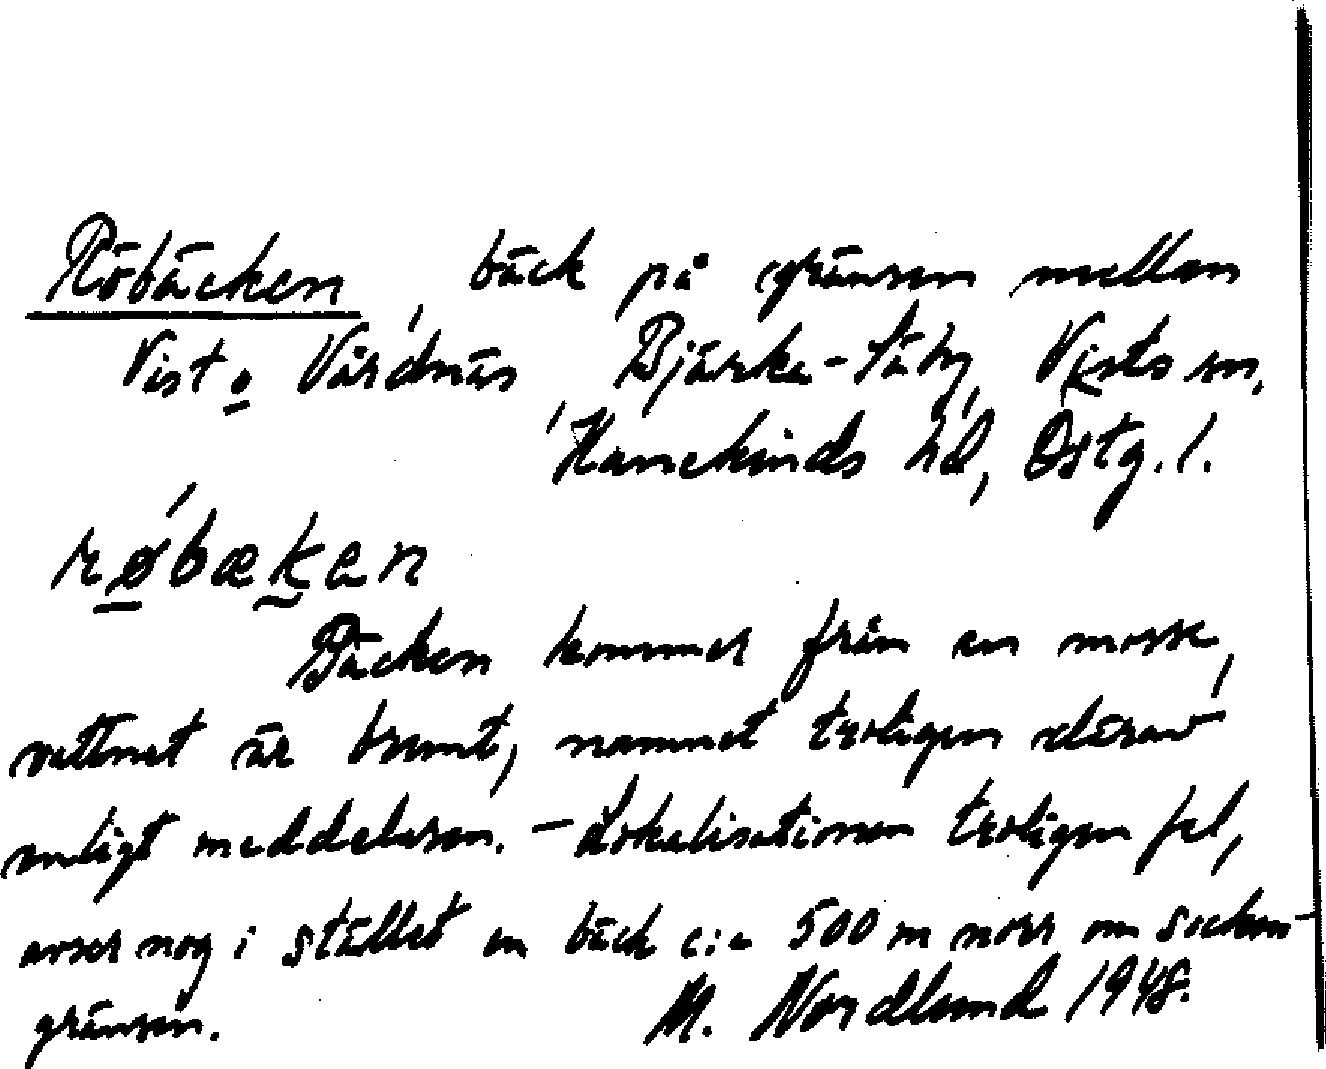 Röbäcken, bäck på gränsen mellan
Vist o Vårdnäs, Bjärka-Säby, Vists sn,
Hanekinds hd, Östg. l.
rø´bæken
Bäcken kommer från en mosse,
vattnet är brunt, namnet troligen därav
enligt meddelaren. – Lokalisationen troligen fel,
avser nog i stället en bäck c:a 500 m norr om socken-
gränsen. M. Nordlund 1948.